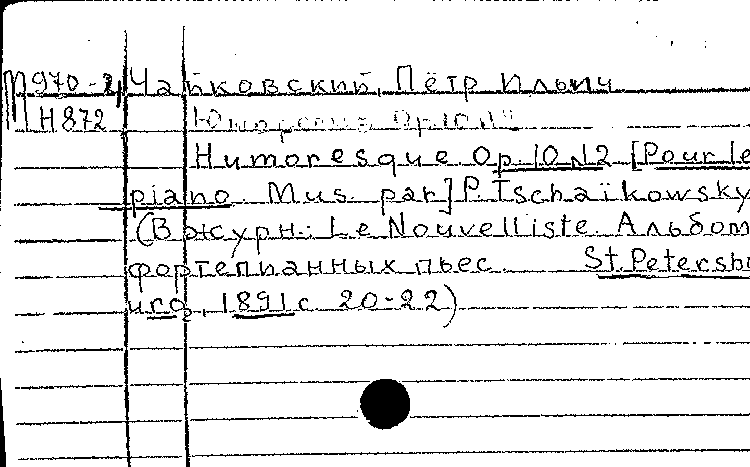 М970-2, Чайковский, Пётр Ильич
Н872 Юмореска Op.10
Humoresque Op.10 N2 [Pour le
piano. Mus. par] P. Tschaïkowsky
(В журн.: Le Nouvelliste. Альбом
фортепианных пьес. St. Petersbu
urg, 1891 с. 20-22)